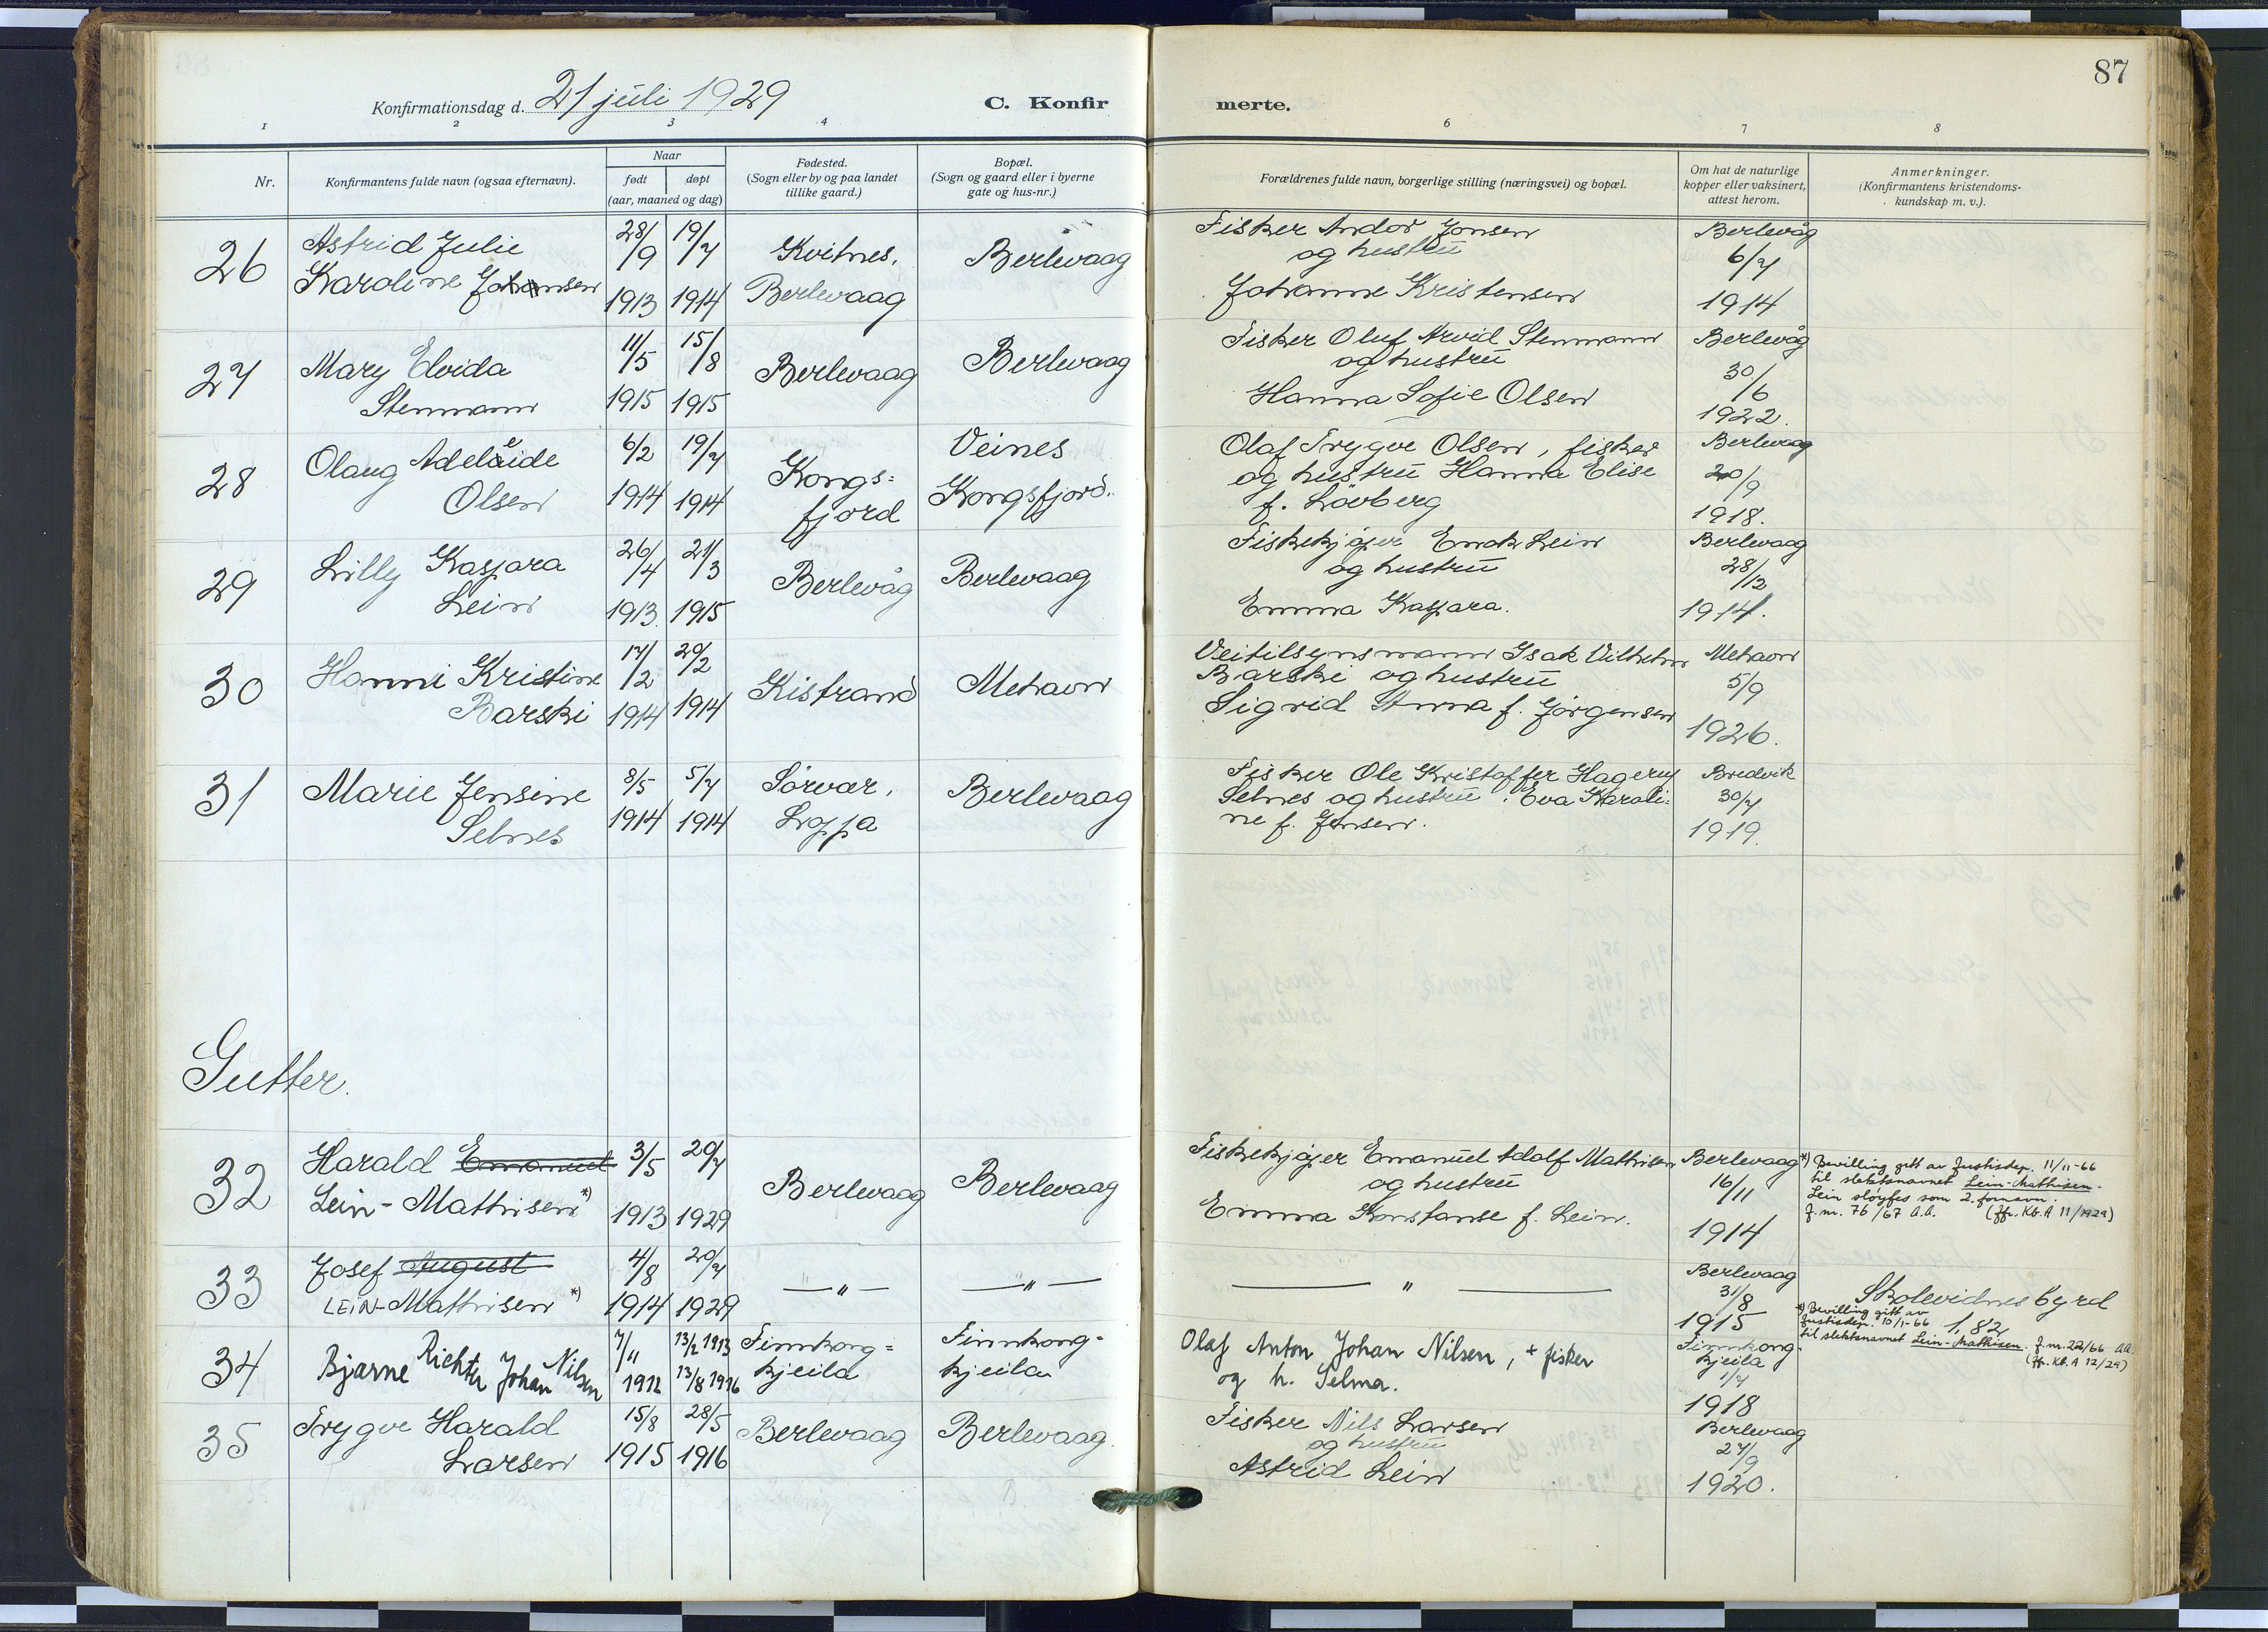 87
Konfirmationsdag d. 21 juli 1929
C. Konfir merte.
1 2 3 4 6 7 8
Nr.
Konfirmantens fulde navn (ogsaa efternavn).
Naar
født døpt
(aar, maaned og dag)
Fødested.
(Sogn eller by og paa landet
tillike gaard.)
Bopæl.
(Sogn og gaard eller i byerne
gate og hus-nr.)
Forældrenes fulde navn, borgerlige stilling (næringsvei) og bopæl.
Om hat de naturlige
kopper eller vaksinert,
attest herom.
Anmerkninger.
(Konfirmantens kristendoms-
kundskap m. v.).
26
Astrid Julie
Karoline Johansen
28/9 1913
19/7 1914
Kvitnes,
Berlevaag
Berlevaag
Fisker Andor Jonsen
og hustru
Johanne Kristensen
Berlevåg
6/7
1914
27
Mary Elvida
Stenmann
11/5 1915
15/8 1915
Berlevaag
Berlevaag
Fisker Oluf Arvid Stenmann
og hustru
Hanna Sofie Olsen
Berlevåg
30/6
1922.
28
Olaug Adeleide
Olsen
6/2 1914
19/7 1914
Kongs=
fjord
Veines
Kongsfjord.
Olaf Trygve Olsen, fisker
og hustru Hanna Elise
f. Lövberg
Berlevaag
20/9
1918.
29
Lilly Kaspara
Lein
26/4 1913.
21/3 1915
Berlevåg
Berlevaag
Fiskekjøper Enok Lein
og hustru
Emma Kaspara.
Berlevaag
28/12
1914.
30
Hanni Kristine
Barski
17/2 1914
20/2 1914
Kistrand
Mehavn
Veitilsynsmann Isak Vilhelm
Barski og hustru
Sigrid Anna f. Jörgensen
Mehavn
5/9
1926.
31
Marie Jensine
Selnes
8/5 1914
5/7 1914
Sörvær,
Loppa
Berlevaag
Fisker Ole Kristoffer Hagerup
Selnes og hustru Eva Karoli=
ne f. Jensen.
Bredvik
30/7
1919.
Gutter.
32
Harald Emanuel
Lein-Mathisen *)
3/5 1913
20/7 1929
Berlevaag
Berlevaag
Fiskekjøper Emanuel Adolf Mathisen
og hustru
Emma Konstanse f. Lein.
Berlevaag
16/11
1914
*) Bevilling gitt av Justisdep. 11/11-66
til slektsnavnet Lein-Mathisen.
Lein sløyfes som 2. fornavn.
J.nr. 76/67 A.A. (jfr. Kb. A 11/1929)
33
Josef August
LEIN-Mathisen *)
4/8 1914
20/7 1929
— " —
— " —
— " —
Berlevaag
31/8
1915
Skolevidnesbyrd
1,82
*) Bevilling gitt av
Justisdep. 10/1-66
til slektsnavnet Lein-Mathisen. J.nr. 22/66 A.A.
(jfr. Kb. A 12/29)
34
Bjarne Richter Johan Nilsen
7/11 1912
13/2 1913
13/8 1916
Finnkong=
kjeila
Finnkong-
kjeila
Olaf Anton Johan Nilsen, + fisker
og h. Selma.
Finnkong-
kjeila
1/7
1918
35
Trygve Harald
Larsen
15/8 1915
28/5 1916
Berlevaag
Berlevaag
Fisker Nils Larsen
og hustru
Astrid Lein
Berlevaag
27/9
1920.